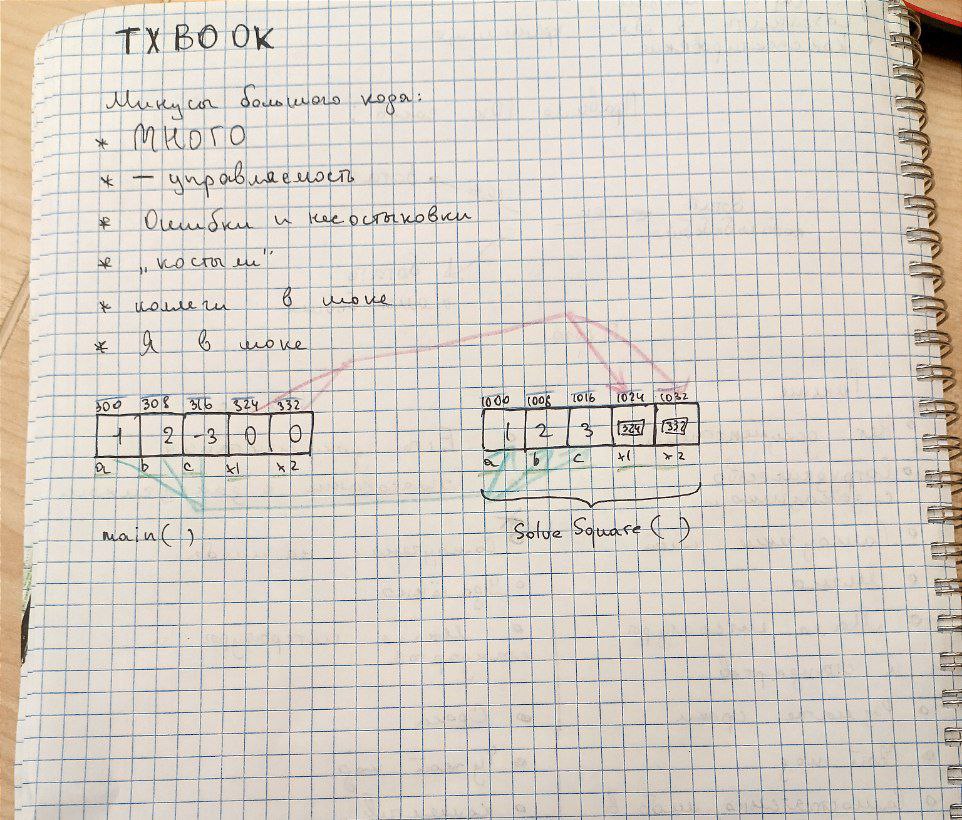 TXBOOK
Минусы большого кода:
* МНОГО
* — управляемость
* Ошибки и несостыковки
* „костыли"
* коллеги в шоке
* Я в шоке
300 308 316 324 332
1 2 -3 0 0
a b c x1 x2
main( )
1000 1008 1016 1024 1032
1 2 3 324 332
a b c x1 x2
Solve Square ( )